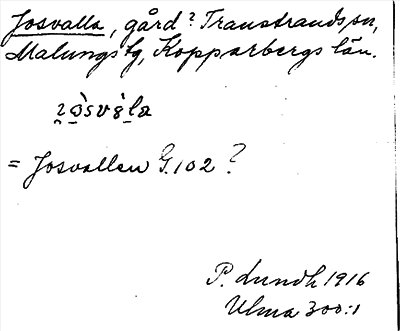 Josvalla, gård? Transtrands sn,
Malungs tg, Kopparbergs län.
= Josvallen G.102?
P. Lundh 1916
Ulma 300:1